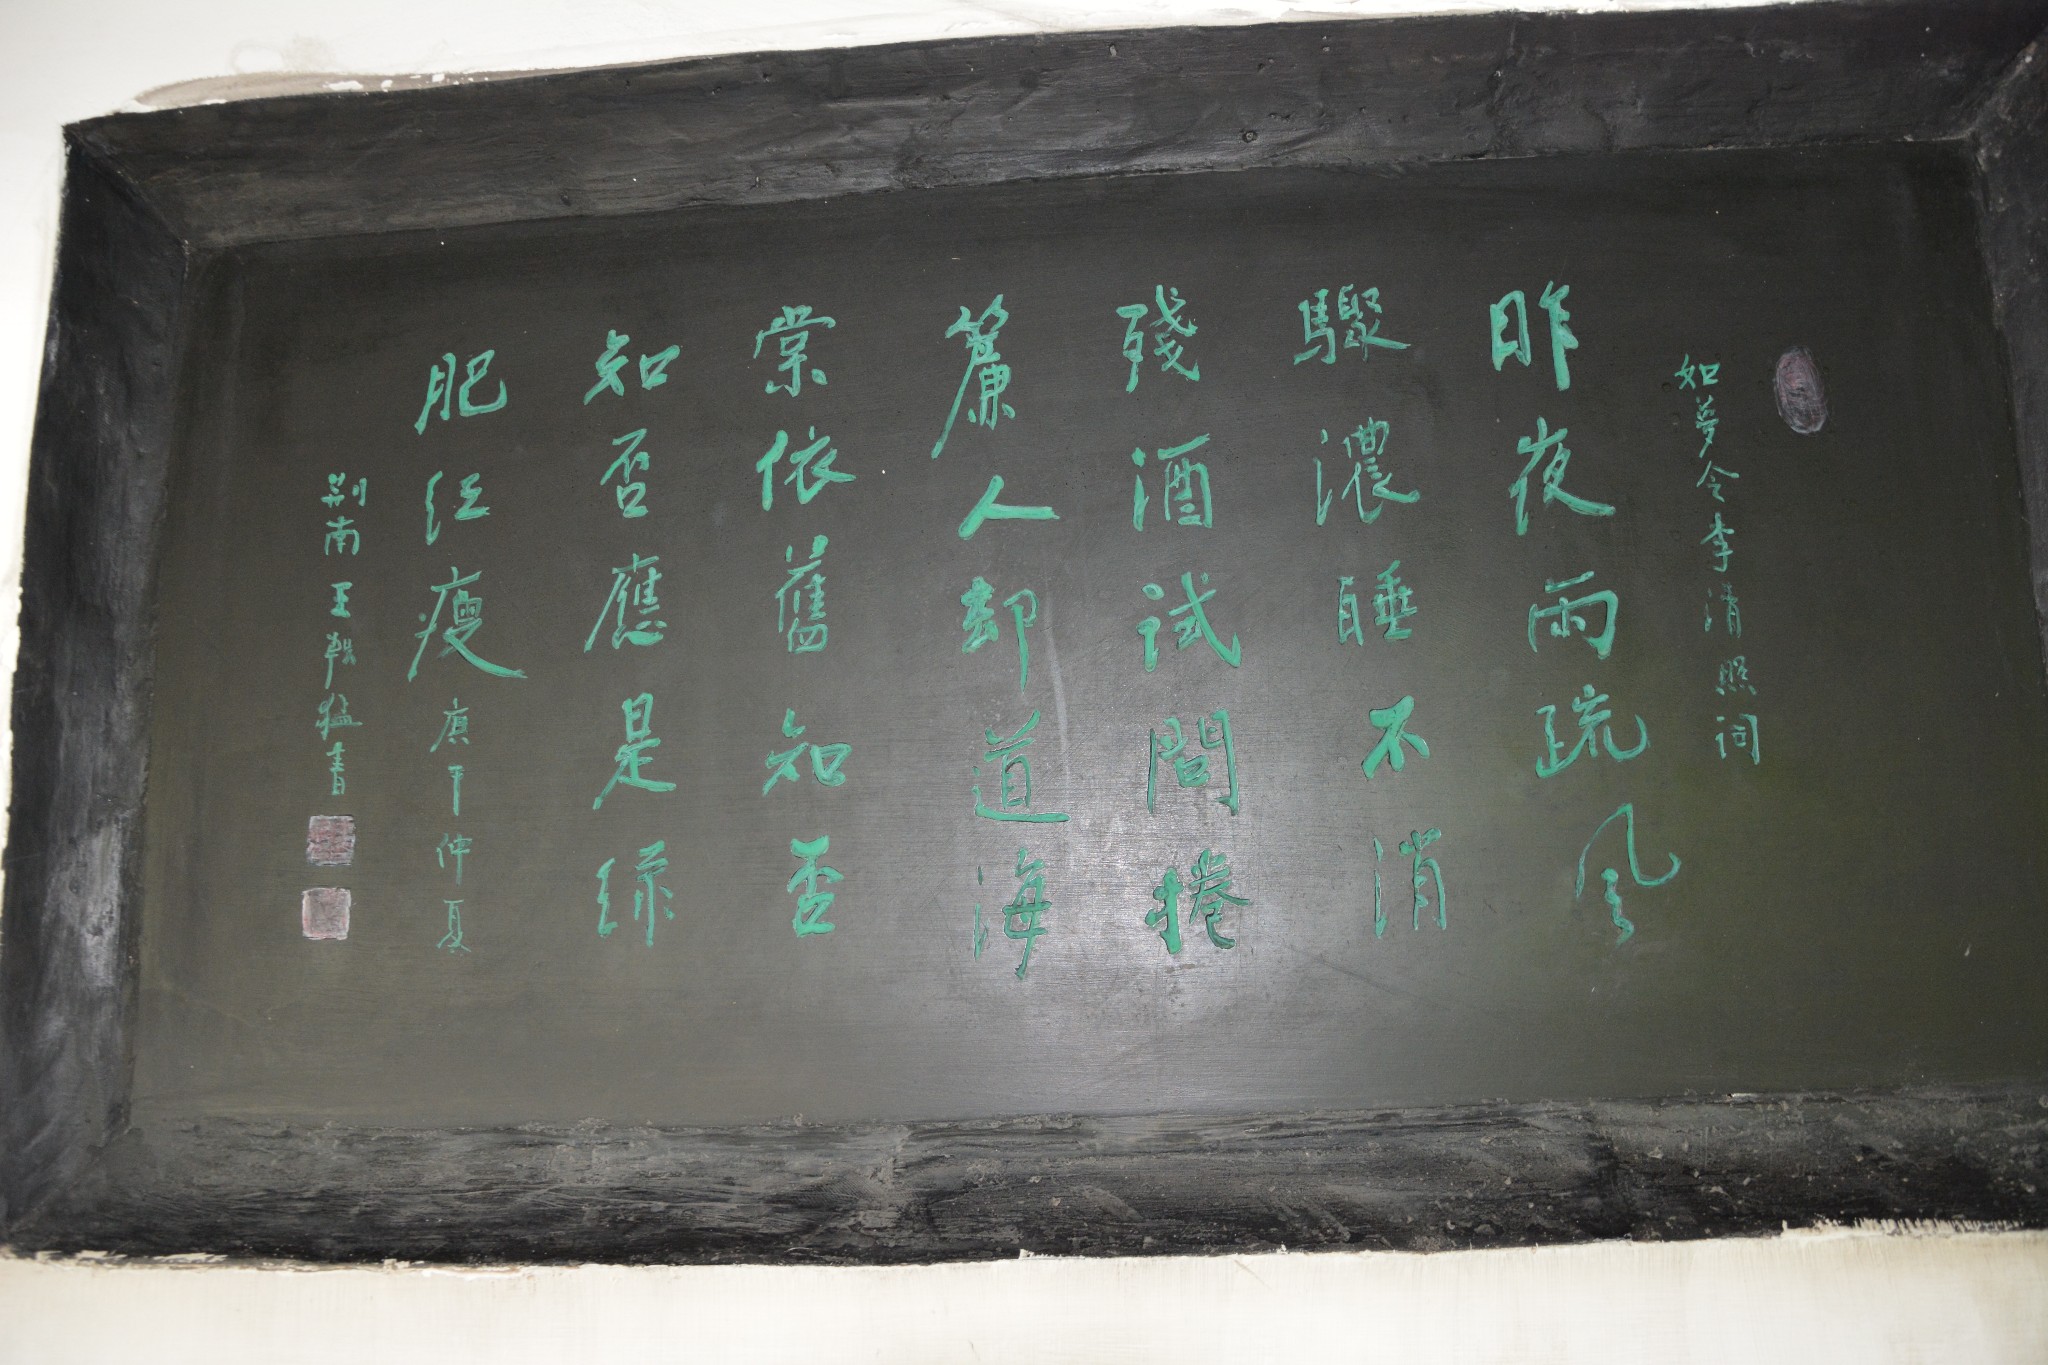 如夢令李清照词
昨夜雨疏风
驟濃睡不消
殘酒試問捲
簾人却道海
棠依舊知否
知否應是绿
肥红瘦庚午仲夏
荆南王 猛书